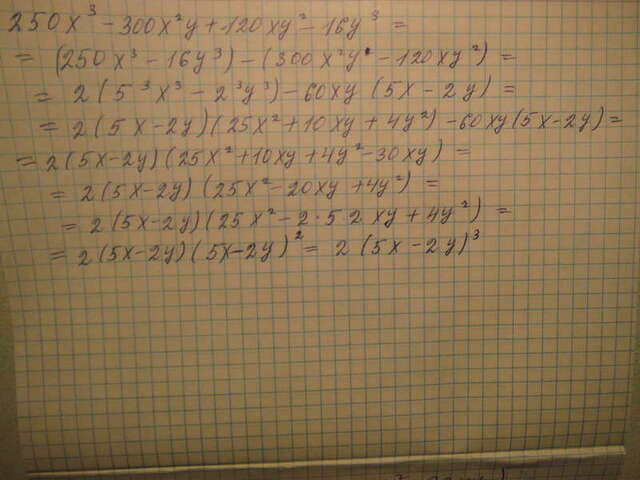 250x³ - 300x²y + 120xy² - 16y³ =
= (250x³ - 16y³) - (300x²y - 120xy²) =
= 2(5³x³ - 2³y³) - 60xy(5x - 2y) =
= 2(5x - 2y)(25x² + 10xy + 4y²) - 60xy(5x - 2y) =
= 2(5x - 2y)(25x² + 10xy + 4y² - 30xy) =
= 2(5x - 2y)(25x² - 20xy + 4y²) =
= 2(5x - 2y)(25x² - 2·5 2xy + 4y²) =
= 2(5x - 2y)(5x - 2y)² = 2(5x - 2y)³